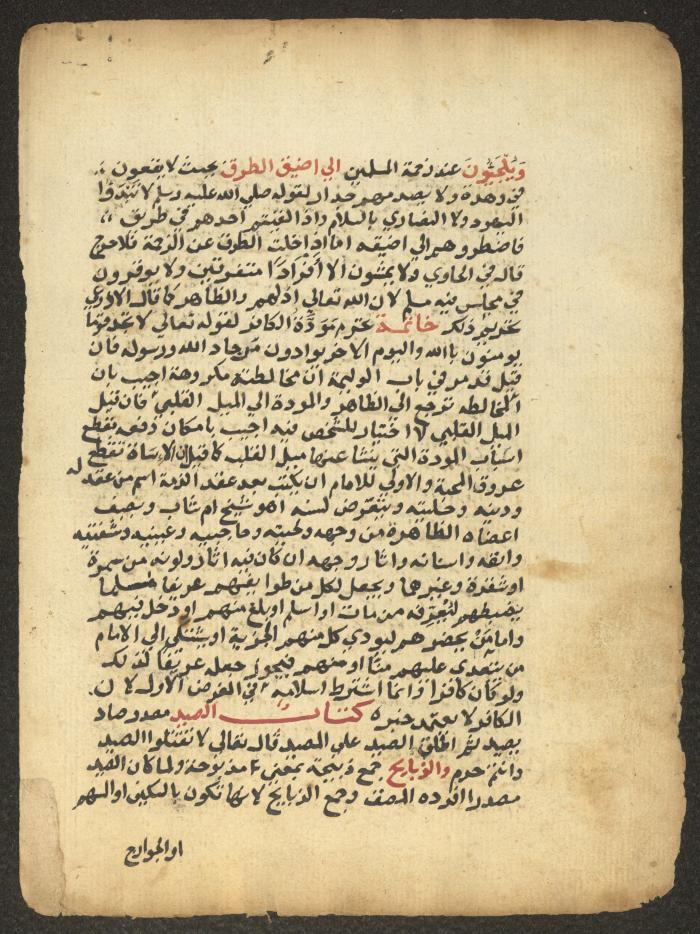 ويلجئون عند زحمة المسلمين الي اضيق الطرق بحيث لا يقعون
في وهدة ولا يصدمهم جدار لقوله صلي الله عليه وسلم لا تبدؤا
اليهود ولا النصاري بالسلام واذا لقيتم احدهم في طريق
فاضطروهم الي اضيقه اما اذا خلت الطرق عن الزحمة فلا حرج
قال في الحاوي ولا يمشون الا افرادا متفرقين ولا يوقرون
في مجلس فيه مسلم لان الله تعالي اذلهم والظاهر كما قاله الاذرعي
تحريم ذلك خاتمة تحرم مودة الكافر لقوله تعالي لا تجد قوما
يومنون بالله واليوم الاخر يوادون من حاد الله ورسوله فان
قيل قد مر في باب الوليمة ان مخالطته مكروهة اجيب بان
المخالطة ترجع الي الظاهر والمودة الي الميل القلبي فان قيل
الميل القلبي لا اختيار للشخص فيه اجيب بامكان دفعه بقطع
اسباب المودة التي ينشا عنها ميل القلب كما قيل ان الاساة تقطع
عروق المحبة والاولي للامام ان يكتب بعد عقد الذمة اسم من عقد له
ودينه وحليته ويتعرض لسنه اهو شيخ ام شاب ويصف
اعضاه الظاهرة من وجهه ولحيته وحاجبيه وعينيه وشفتيه
وانفه واسنانه واثار وجهه ان كان فيه اثار ولونه من سمرة
او شقرة وغيرهما ويجعل لكل من طوايفهم عريفا مسلما
يضبطهم لتعرفه من مات او اسلم او بلغ منهم او دخل فيهم
واما من يحضرهم ليودي كل منهم الجزية او يشتكي الي الامام
من يتعدي عليهم منا او منهم فيجوز جعله عريفا لذلك
ولو كان كافرا وانما اشترط اسلامه في الغرض الاول لان
الكافر لا يعتمد خبره كتاب الصيد مصدر صاد
يصيد ثم اطلق الصيد علي المصيد قال تعالي لا تقتلوا الصيد
وانتم حرم والذبايح جمع ذبيحة بمعني مذبوحة ولما كان الصيد
مصدرا افرده المصنف وجمع الذبايح لانها تكون بالسكين او السهم
او الجوارح